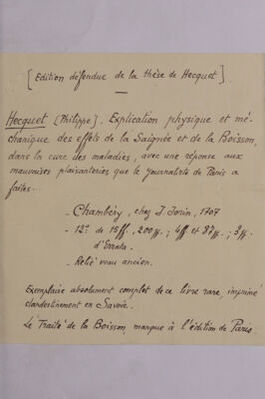 [Edition défendue de la thèse de Hecquet].
Hecquet [Philippe]. Explication physique et mé-
chanique des effets de la Saignée et de la Boisson,
dans la cure des maladies, avec une réponse aux
mauvaises plaisanteries que le Journaliste de Paris a
faites..
- Chambéry, chez J. Gorin, 1707
- 12° de 15ff, 200pp.; 4ff et 87pp.; 3pp.
d'Errata.
- Relié veau ancien.
Exemplaire absolument complet de ce livre rare, imprimé
clandestinement en Savoie.
Le Traité de la Boisson, manque à l'édition de Paris